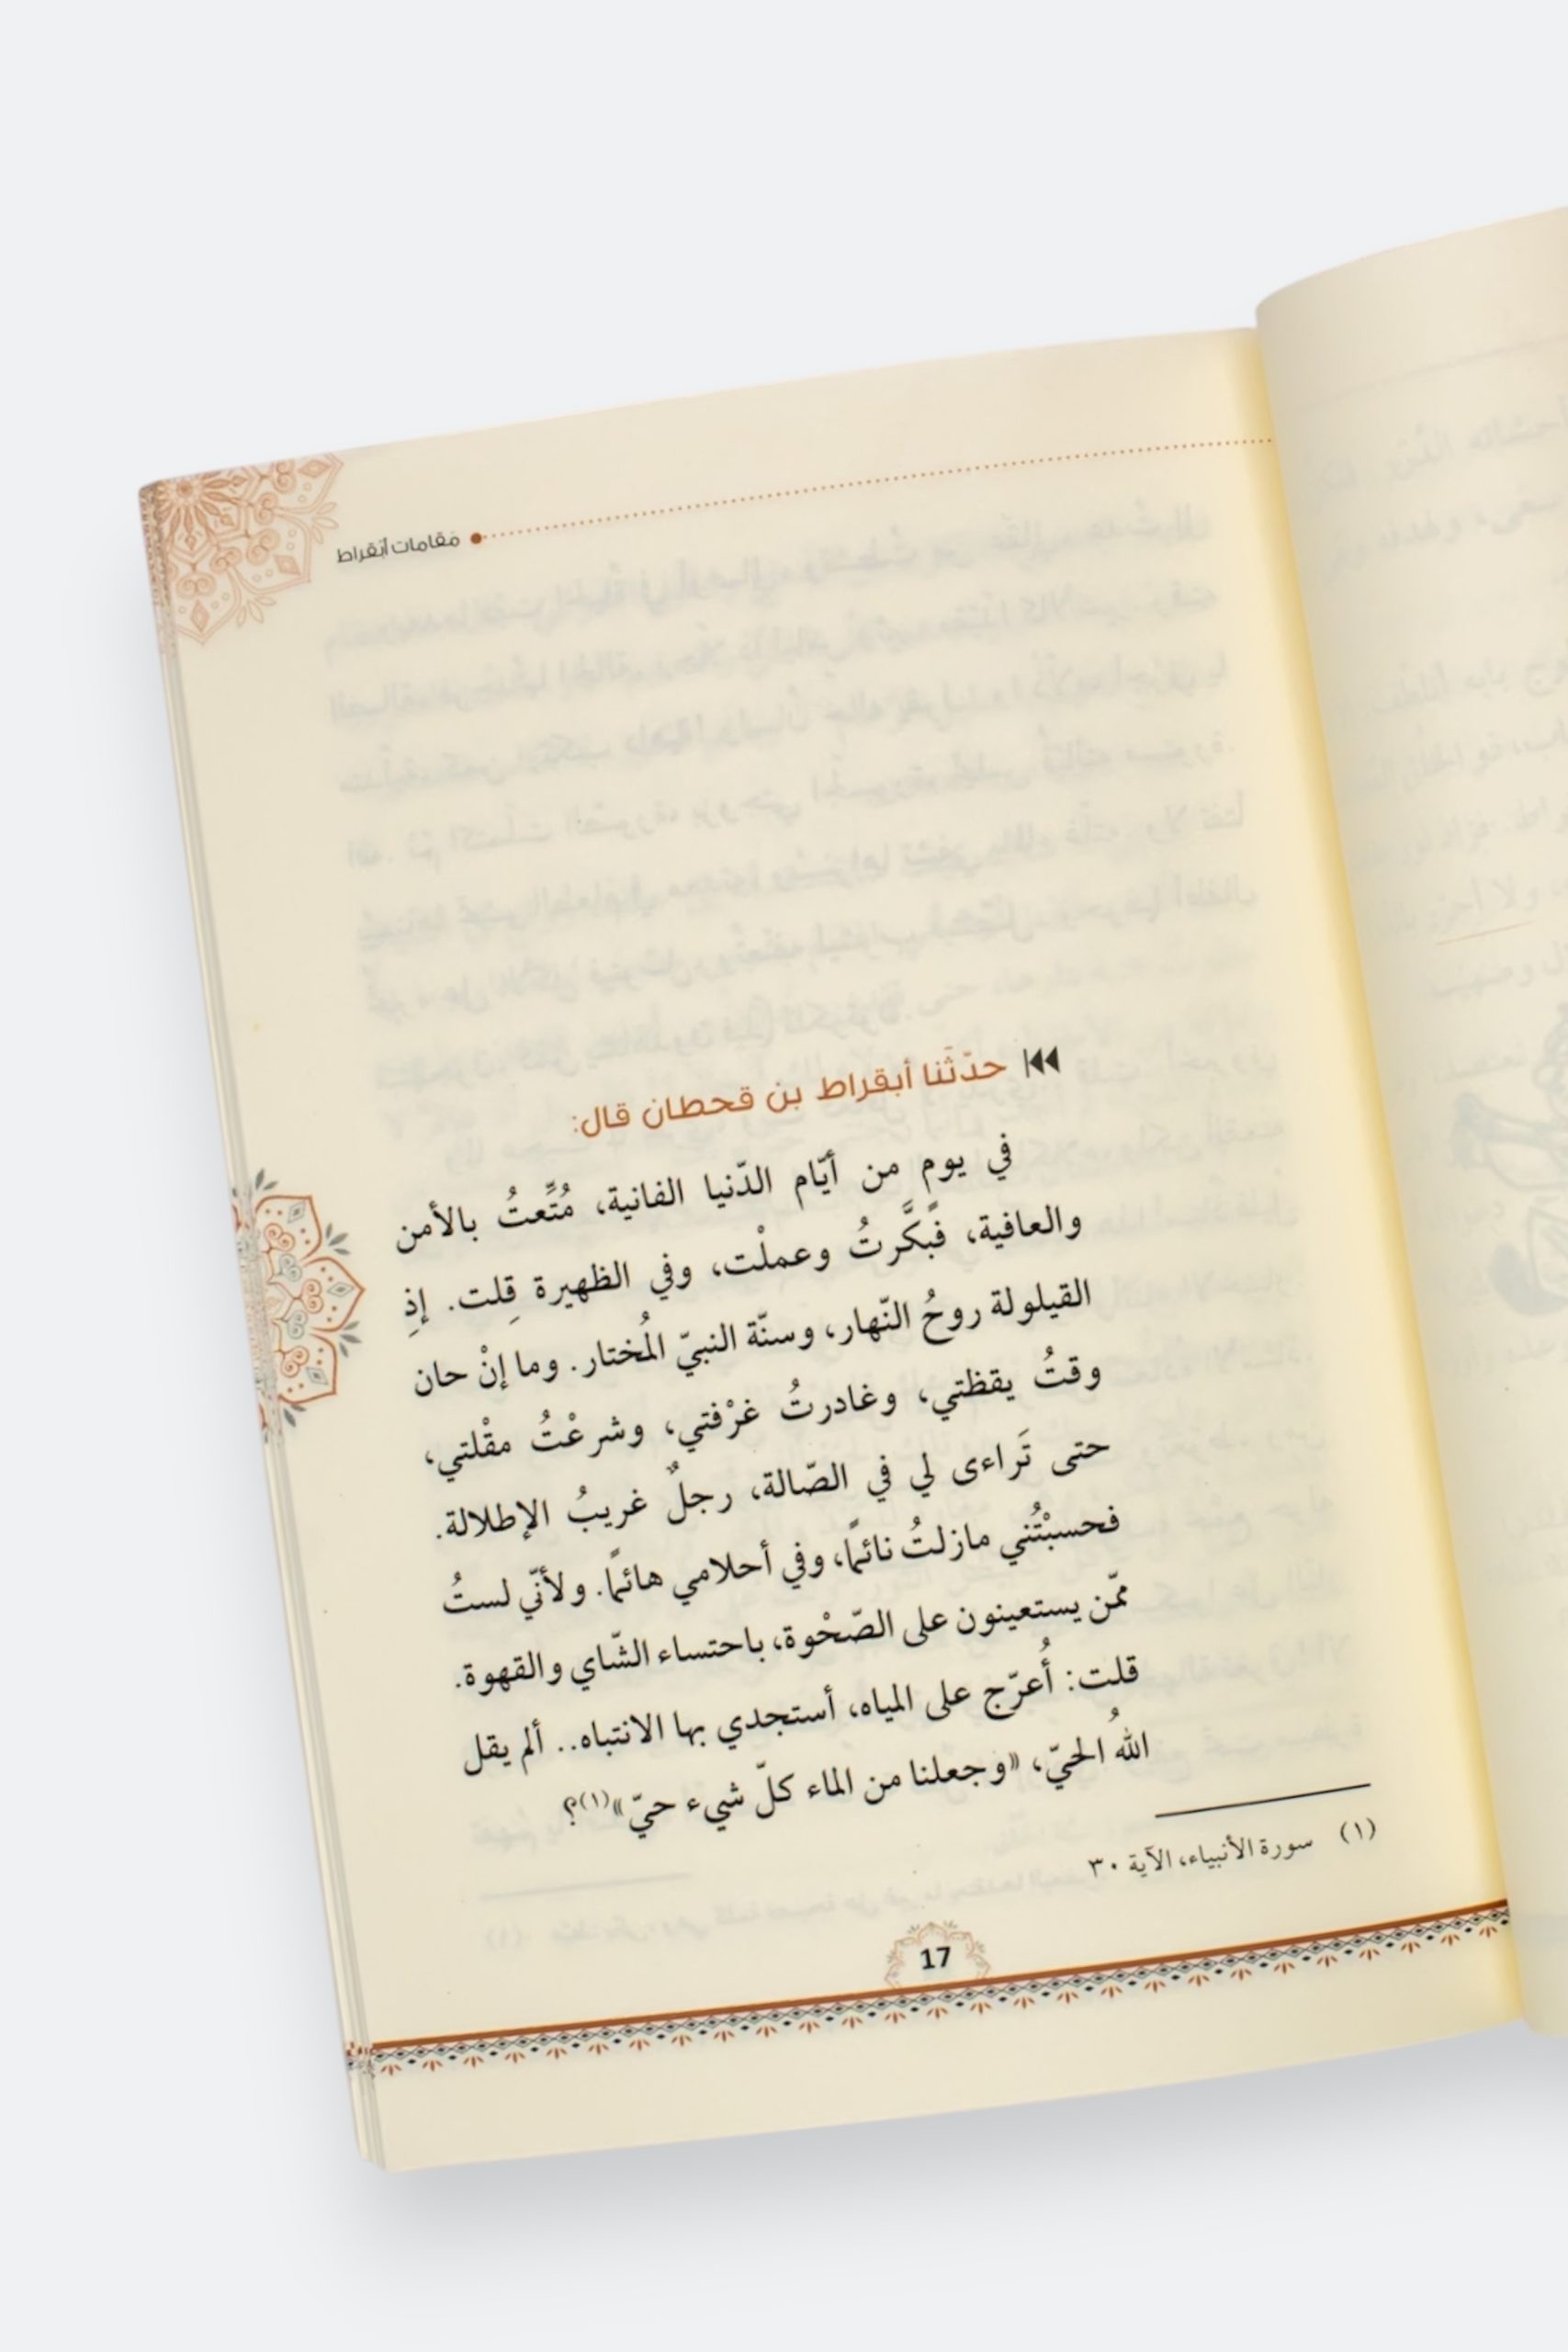 مقامات أبقراط
حدّثَنا أبقراط بن قحطان قال:
في يوم من أيّام الدّنيا الفانية، مُتِّعتُ بالأمن
والعافية، فبَكَّرتُ وعملْت، وفي الظهيرة قِلت. إذِ
القيلولة روحُ النّهار، وسنّة النبيّ المُختار. وما إنْ حان
وقتُ يقظتي، وغادرتُ غرْفتي، وشرعْتُ مقْلتي،
حتى تَراءى لي في الصّالة، رجلٌ غريبُ الإطلالة.
فحسبْتُني مازلتُ نائمًا، وفي أحلامي هائمًا. ولأنّي لستُ
ممّن يستعينون على الصّحْوة، باحتساء الشّاي والقهوة.
قلت: أُعرّج على المياه، أستجدي بها الانتباه.. ألم يقل
اللهُ الحيّ، «وجعلنا من الماء كلّ شيء حيّ»(١)؟
(١) سورة الأنبياء، الآية ٣٠
17